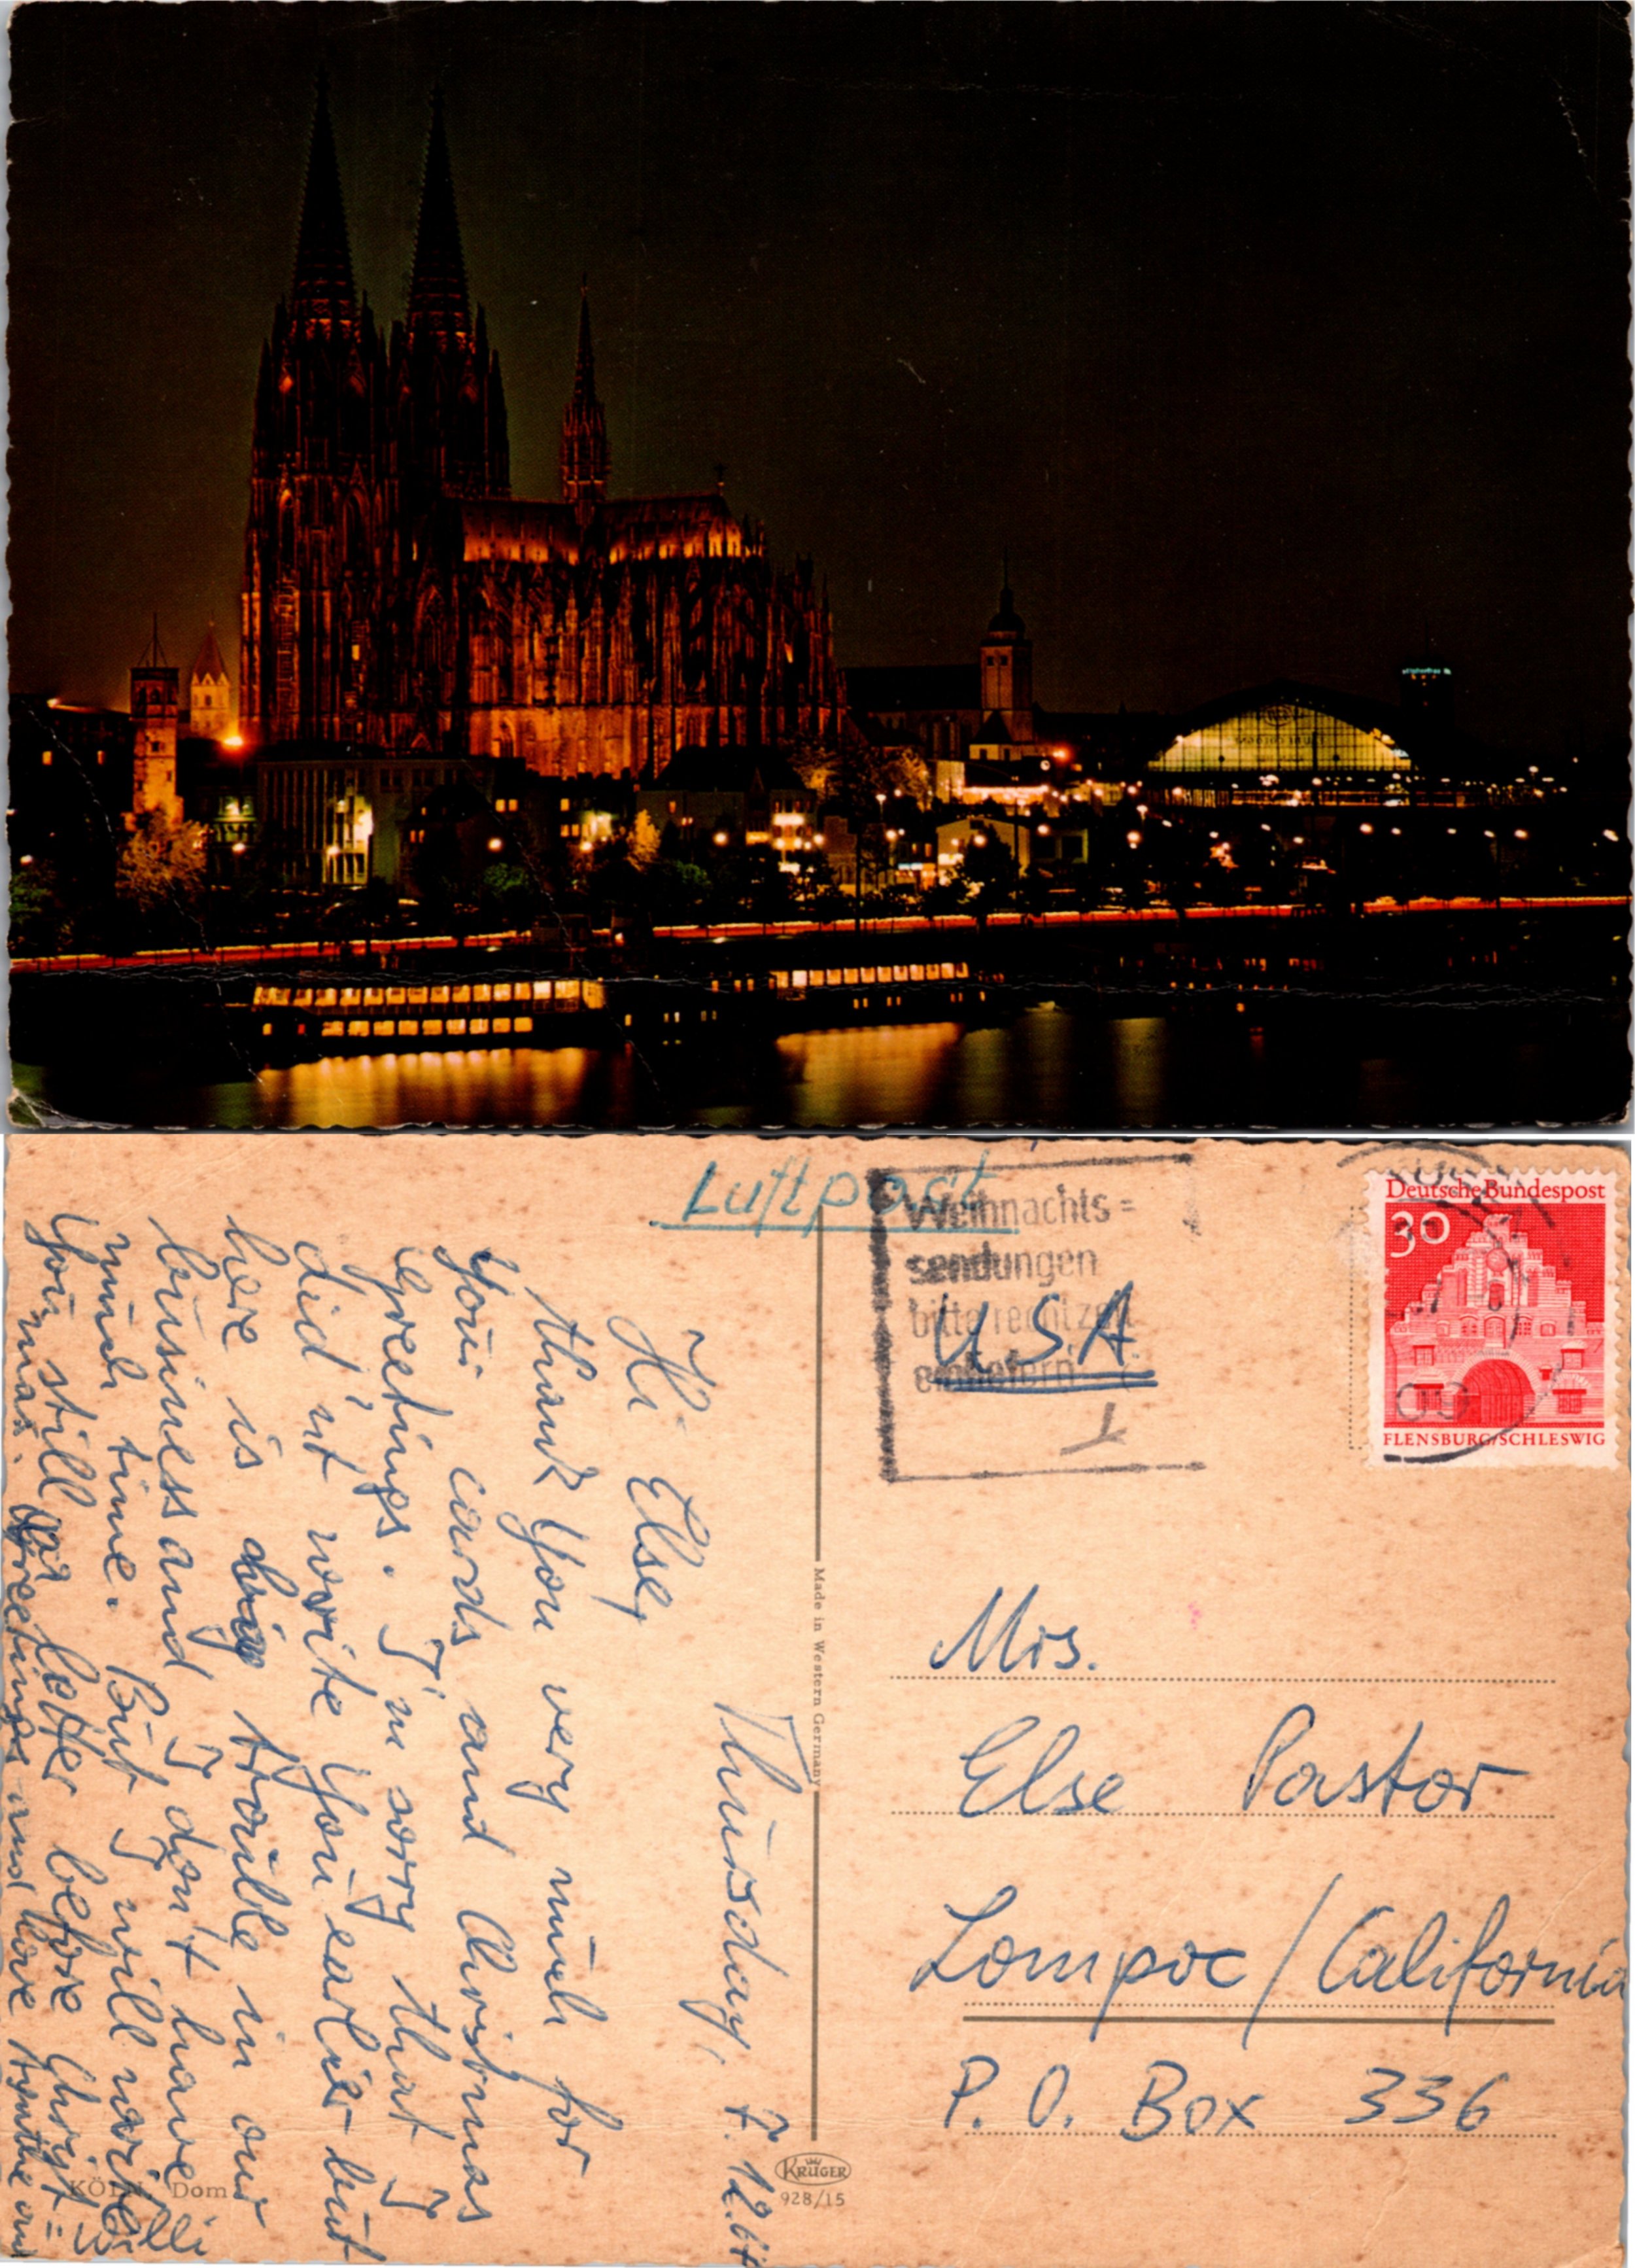 Luftpost
Weihnachts=
sendungen
bitte rechtzeit
einliefern
U.S.A.
Deutsche Bundespost
30
FLENSBURG/SCHLESWIG
09
Thursday, 7.12.67
Hi Elsey
thank You very much for
Your cards and Christmas
greetings. I'm sorry that I
did'nt write You earlier but
here is trouble in our
business and I don't have
much time. But I will write
You still letter before Christ=
mas. Greetings and love
Willi
Made in Western Germany
KRÜGER
928/15
KÖLN, Dom
Mrs.
Else Pastor
Lompoc / California
P. O. Box 336